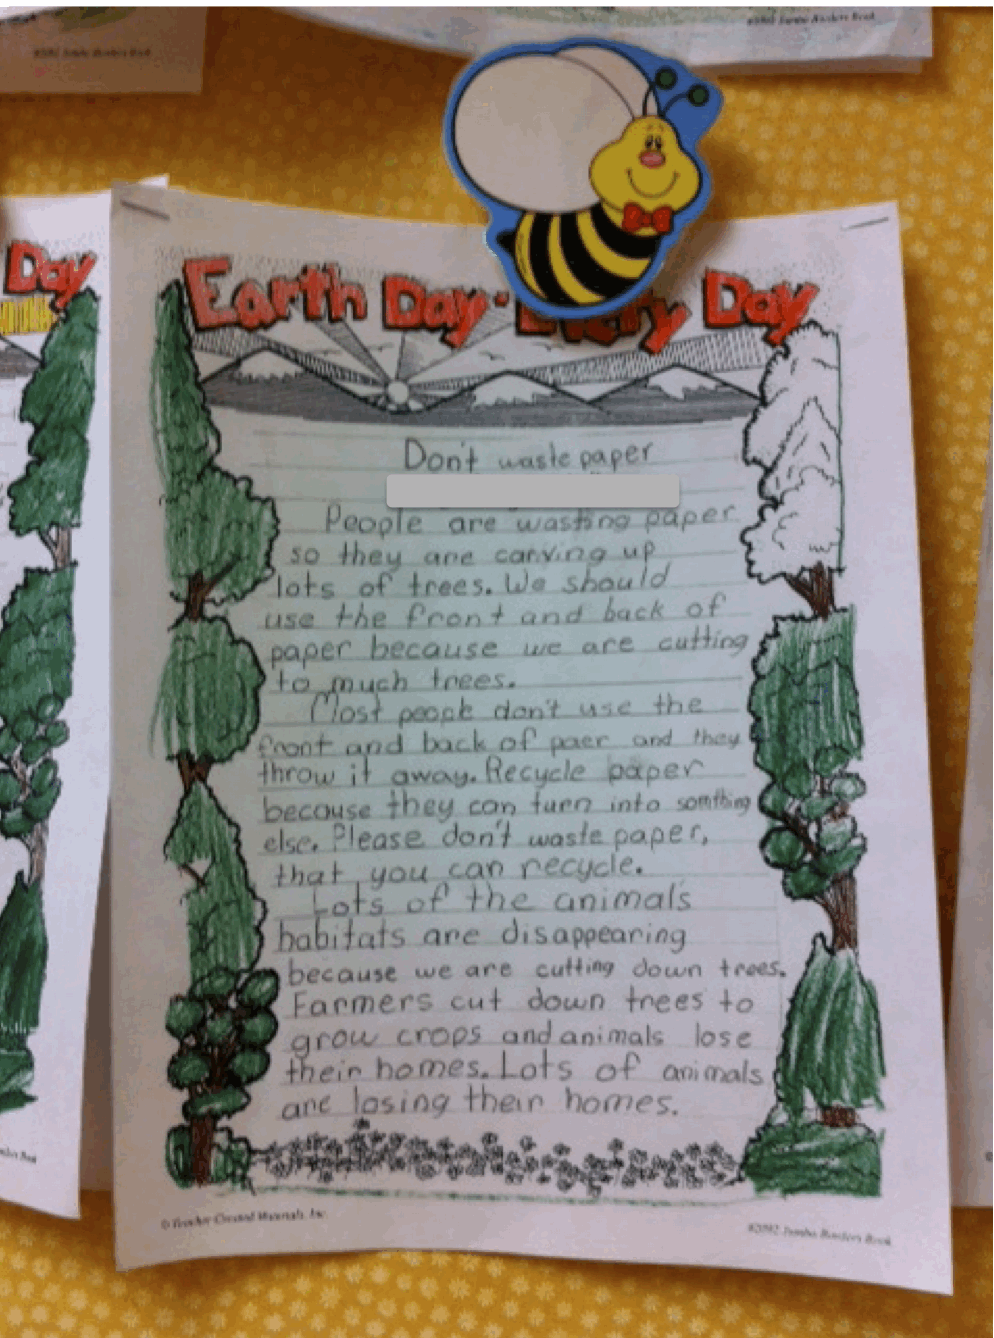 #2092 Jumbo Borders Book
Day
Earth Day · Every Day
Don't waste paper
People are wasting paper
so they are carving up
lots of trees. We should
use the front and back of
paper because we are cutting
to much trees.
Most people don't use the
front and back of paer and they
throw it away. Recycle paper
because they can turn into somthing
else. Please don't waste paper,
that you can recycle.
Lots of the animals
habitats are disappearing
because we are cutting down trees.
Farmers cut down trees to
grow crops and animals lose
their homes. Lots of animals
are losing their homes.
© Teacher Created Materials, Inc.
#2092 Jumbo Borders Book